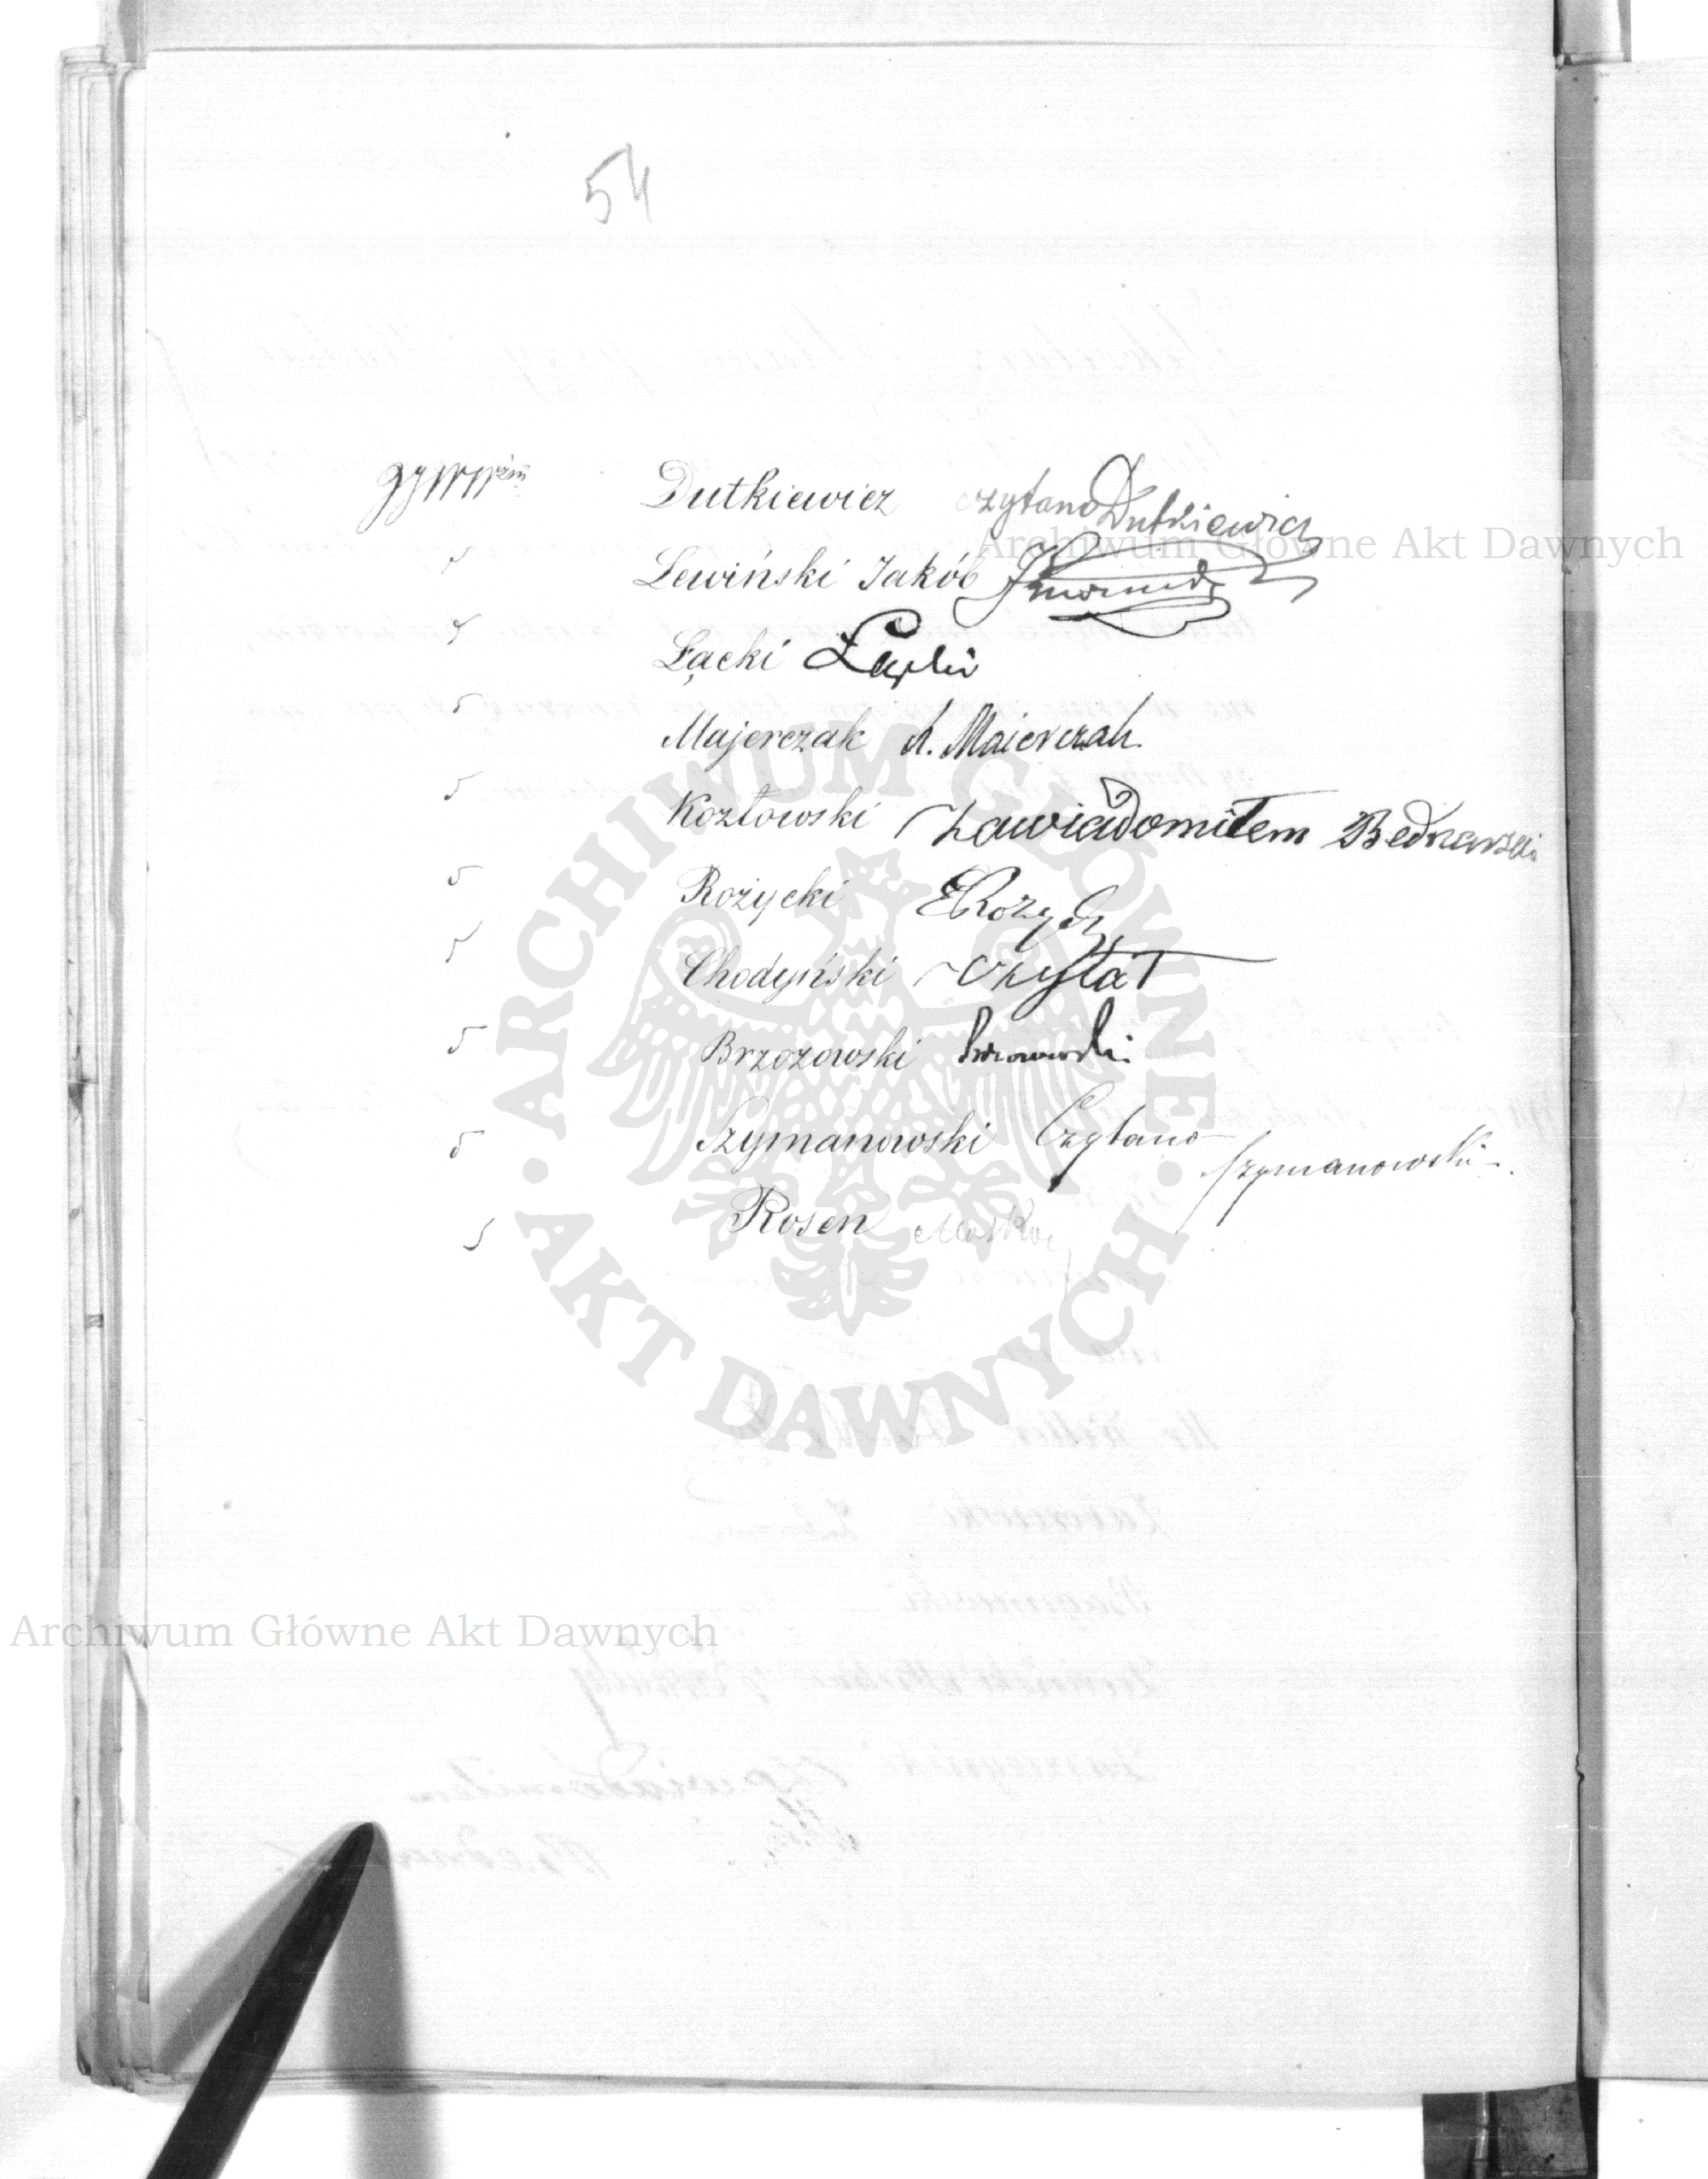 54
Dutkiewicz czytano Dutkiewicz
Lewiński Jakób
Łącki Łącki
Majerczak A. Majerczak.
Kozłowski Zawiadomiłem Bednarski
Rożycki Rożycki
Chodyński czytał
Brzozowski Brzozowski
Szymanowski Czytano Szymanowski
Rosen
Archiwum Główne Akt Dawnych
ARCHIWUM GŁÓWNE
AKT DAWNYCH
Archiwum Główne Akt Dawnych